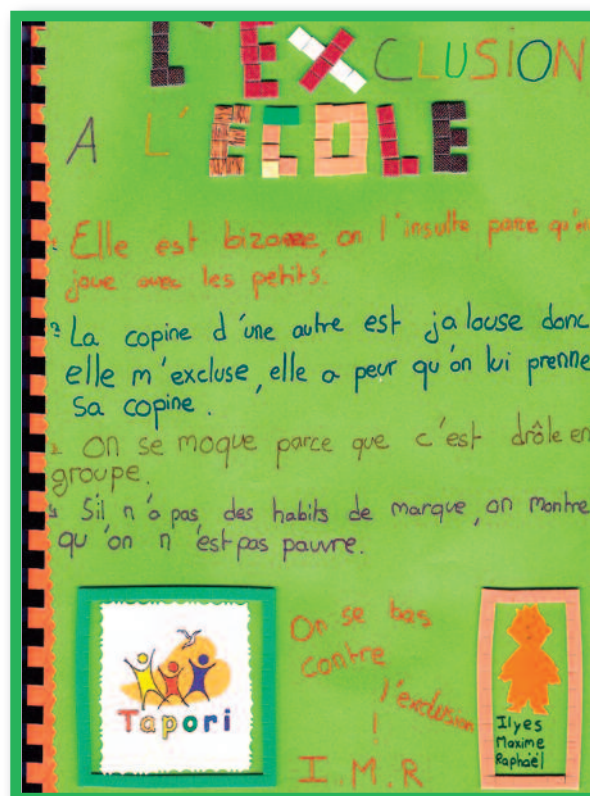 L'EXCLUSION
A L'ECOLE
Elle est bizarre, on l'insulte parce qu'on
joue avec les petits.
La copine d'une autre est jalouse donc
elle m'excluse, elle a peur qu'on lui prenne
sa copine.
On se moque parce que c'est drôle en
groupe.
Sil n'a pas des habits de marque, on montre
qu'on n'est pas pauvre.
Tapori
On se bas
contre
l'exclusion
!
I.M.R
Ilyes
Maxime
Raphaël